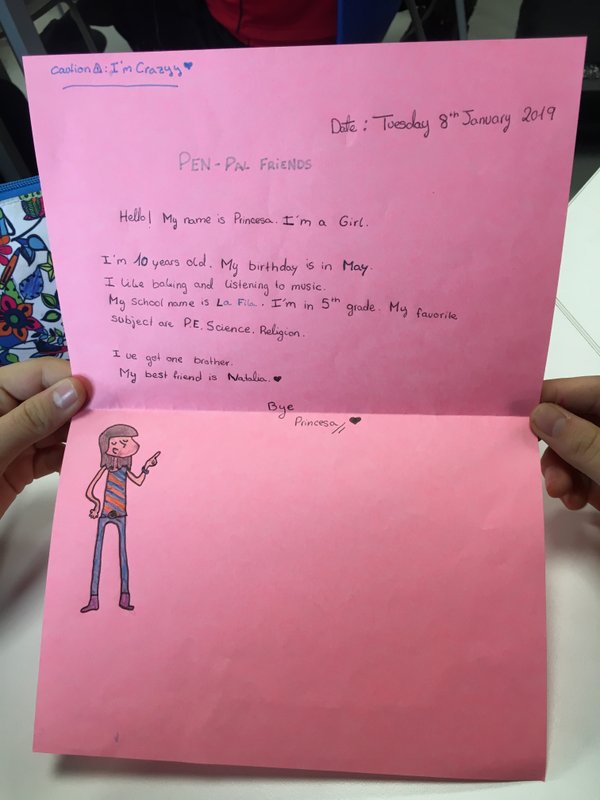 Caution⚠: I'm Crazyy ♥
Date: Tuesday 8th January 2019
PEN-PAL FRIENDS
Hello! My name is Princesa. I'm a Girl.
I'm 10 years old. My birthday is in May.
I like baking and listening to music.
My school name is La Fila. I'm in 5th grade. My favorite
subject are P.E, Science, Religion.
I ve got one brother.
My best friend is Natalia. ♥
Bye
Princesa// ♥